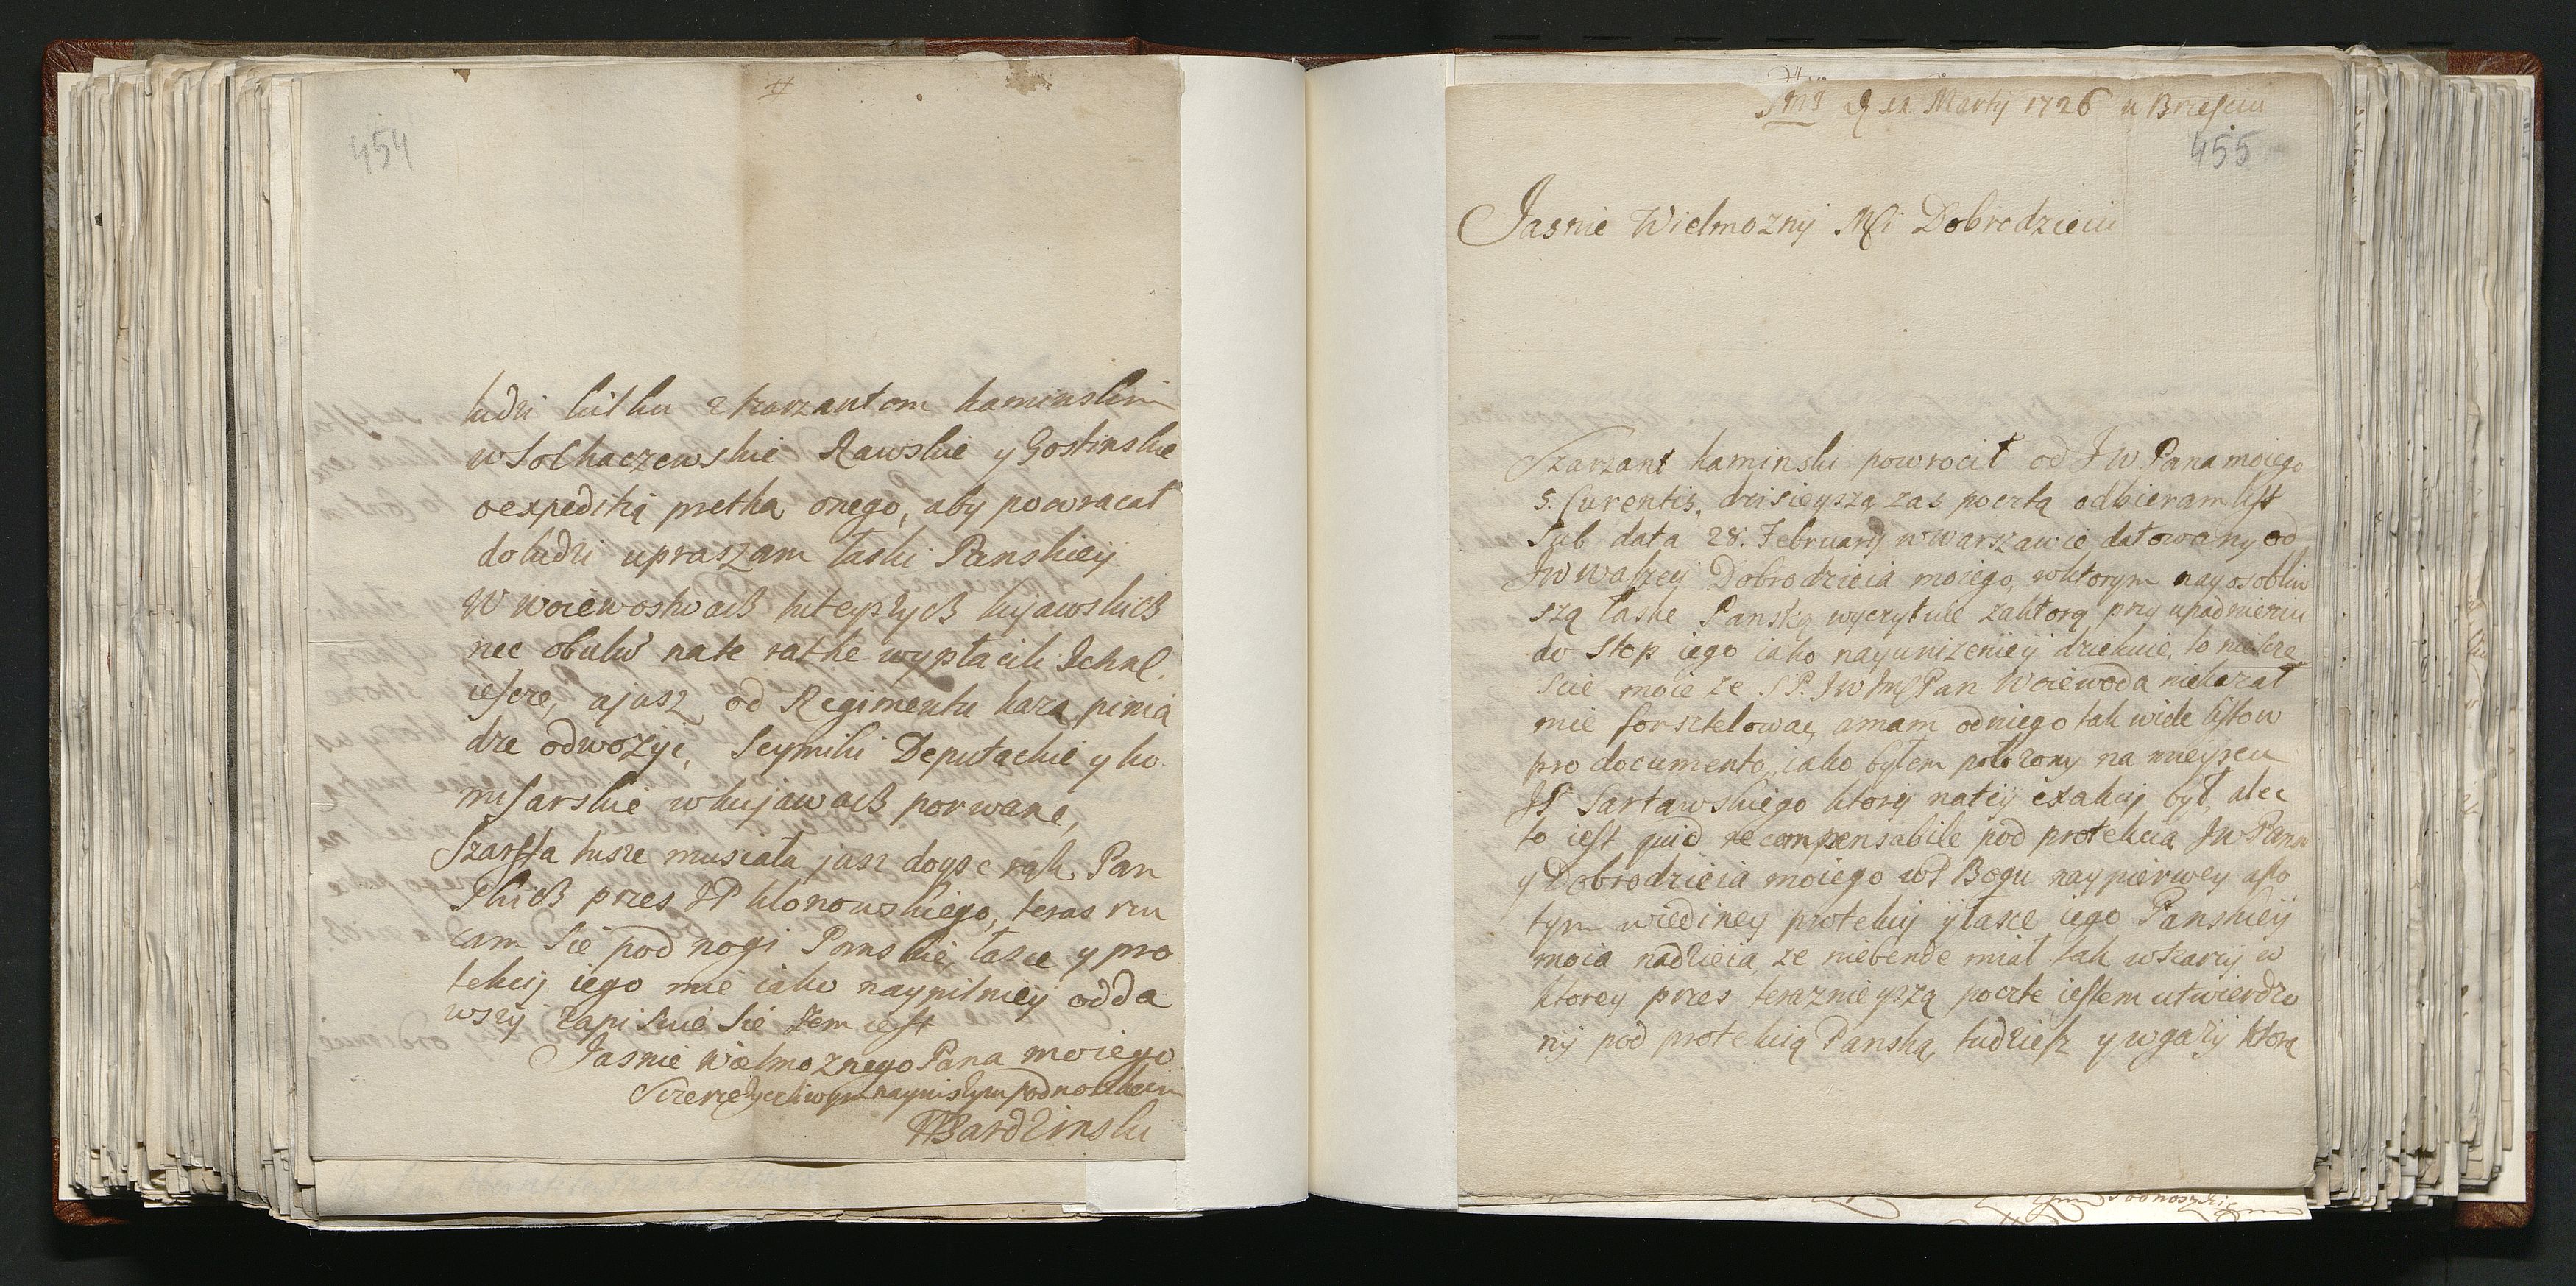 454
ludzi kilku z Szarzantom kaminskim
w Sochaczewskie Rawskie y Gostinskie
o expeditią pretka onego, aby powracał
do ludzi upraszam łaski Panskieÿ
W woiewostwach tuteyszych kujawskich
nec obulus na te rathe wypłacili
iescze, a jusz od Regimentu kazą pinią
dze odwozÿc, Seymiki Deputackie y ko
misarskie w kujawach porwane,
Szarsta tusze musiała jusz doysc rąk Pan
skich przes JP klonowskiego, teras rzu
cam sie pod nogi Panskie, łasce y pro
tekcij iego mie iako naypilnieÿ odda
wszÿ zapisuie sie zem iest
Jasnie Wielmoznego Pana moiego
Sczerze zyczliwym naynisszym podnoszkiem
Bardzinski
d 12 Martij 1726 w Brzesciu
455
Jasnie Wielmoznÿ Mci Dobrodzieiu
Szarzant kaminski powrocił od JW Pana moiego
5. Curentis, dzisieyszą zas pocztą odbieram list
sub data 28. Februarij w Warszawie datowany od
JW Waszeÿ Dobrodzieia moiego, w ktorym nayosobliw
szą łaske Panską wyczytuie za ktorą przy upadnieniu
do stop iego iako nayunizenieÿ dziekuie, to niescze
scie moie ze SP. JW Jmс Pan Woiewoda niekazał
mie forsztelowac, a mam od niego tak wiele listow
pro documento, iako byłem połozony na mieyscu
JP Sartawskiego ktorÿ na teÿ exakcij był, alec
to iest quid recompensabile pod protekcia JW Pana
y Dobrodzieia moiego w P Bogu naypierwey a po
tym w iedineÿ protekcij ÿ łasce iego Panskieÿ
moia nadzieia, ze niebende miał tak w skarzij w
ktorey przes teraznieyszą poczte iestem utwierdzo
nÿ pod protekcią Panską, tudziesz y w gazÿ ktorą